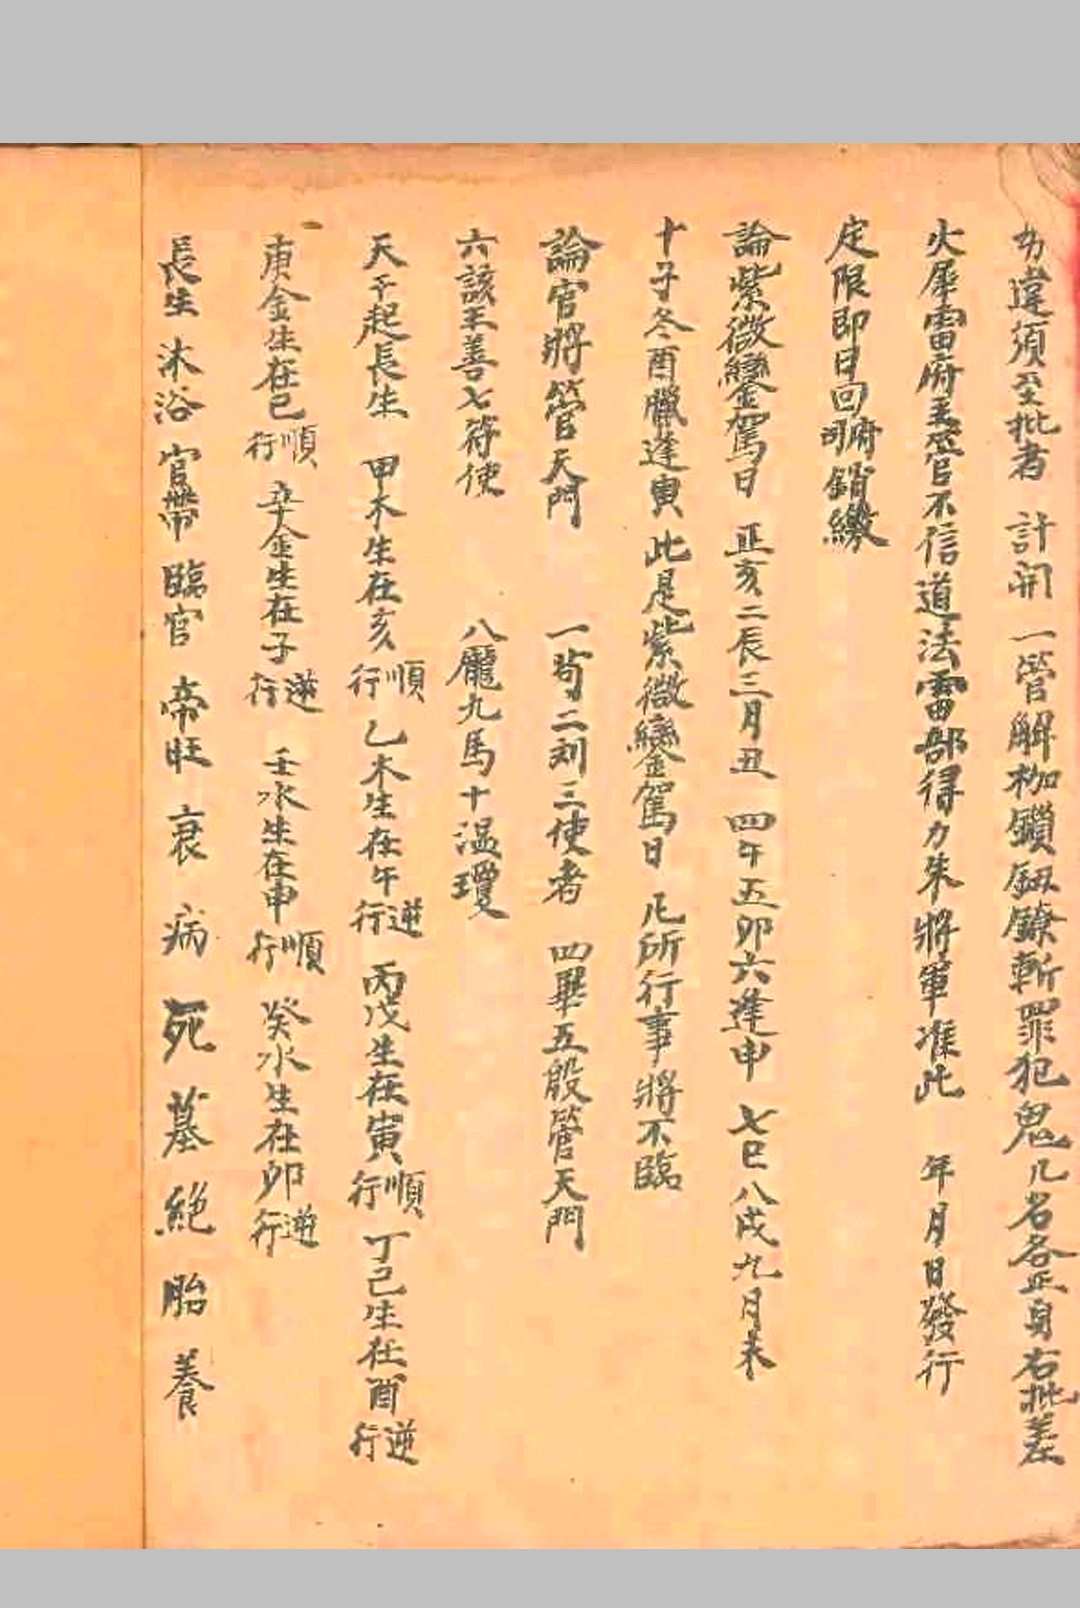 力違須至批者 計開 一管解枷鎖鈕鐐斬罪犯鬼几名各正身右批差
火犀雷府主管不信道法雷部得力朱將軍准此 年月日發行
定限即日回府司銷繳
論紫微鑾駕日 正亥二辰三月丑 四午五卯六逢申 七巳八戌九月未
十子冬酉臘逢寅 此是紫微鑾駕日 凡所行事將不臨
論官將管天門 一茍二刘三使者 四畢五殷管天門
六該王善七符使 八龐九馬十溫瓊
天干起長生 甲木生在亥順行 乙木生在午逆行 丙戊生在寅順行 丁己生在酉逆行
庚金生在巳順行 辛金生在子逆行 壬水生在申順行 癸水生在卯逆行
長生 沐浴 官帶 臨官 帝旺 衰 病 死 墓 絕 胎 養